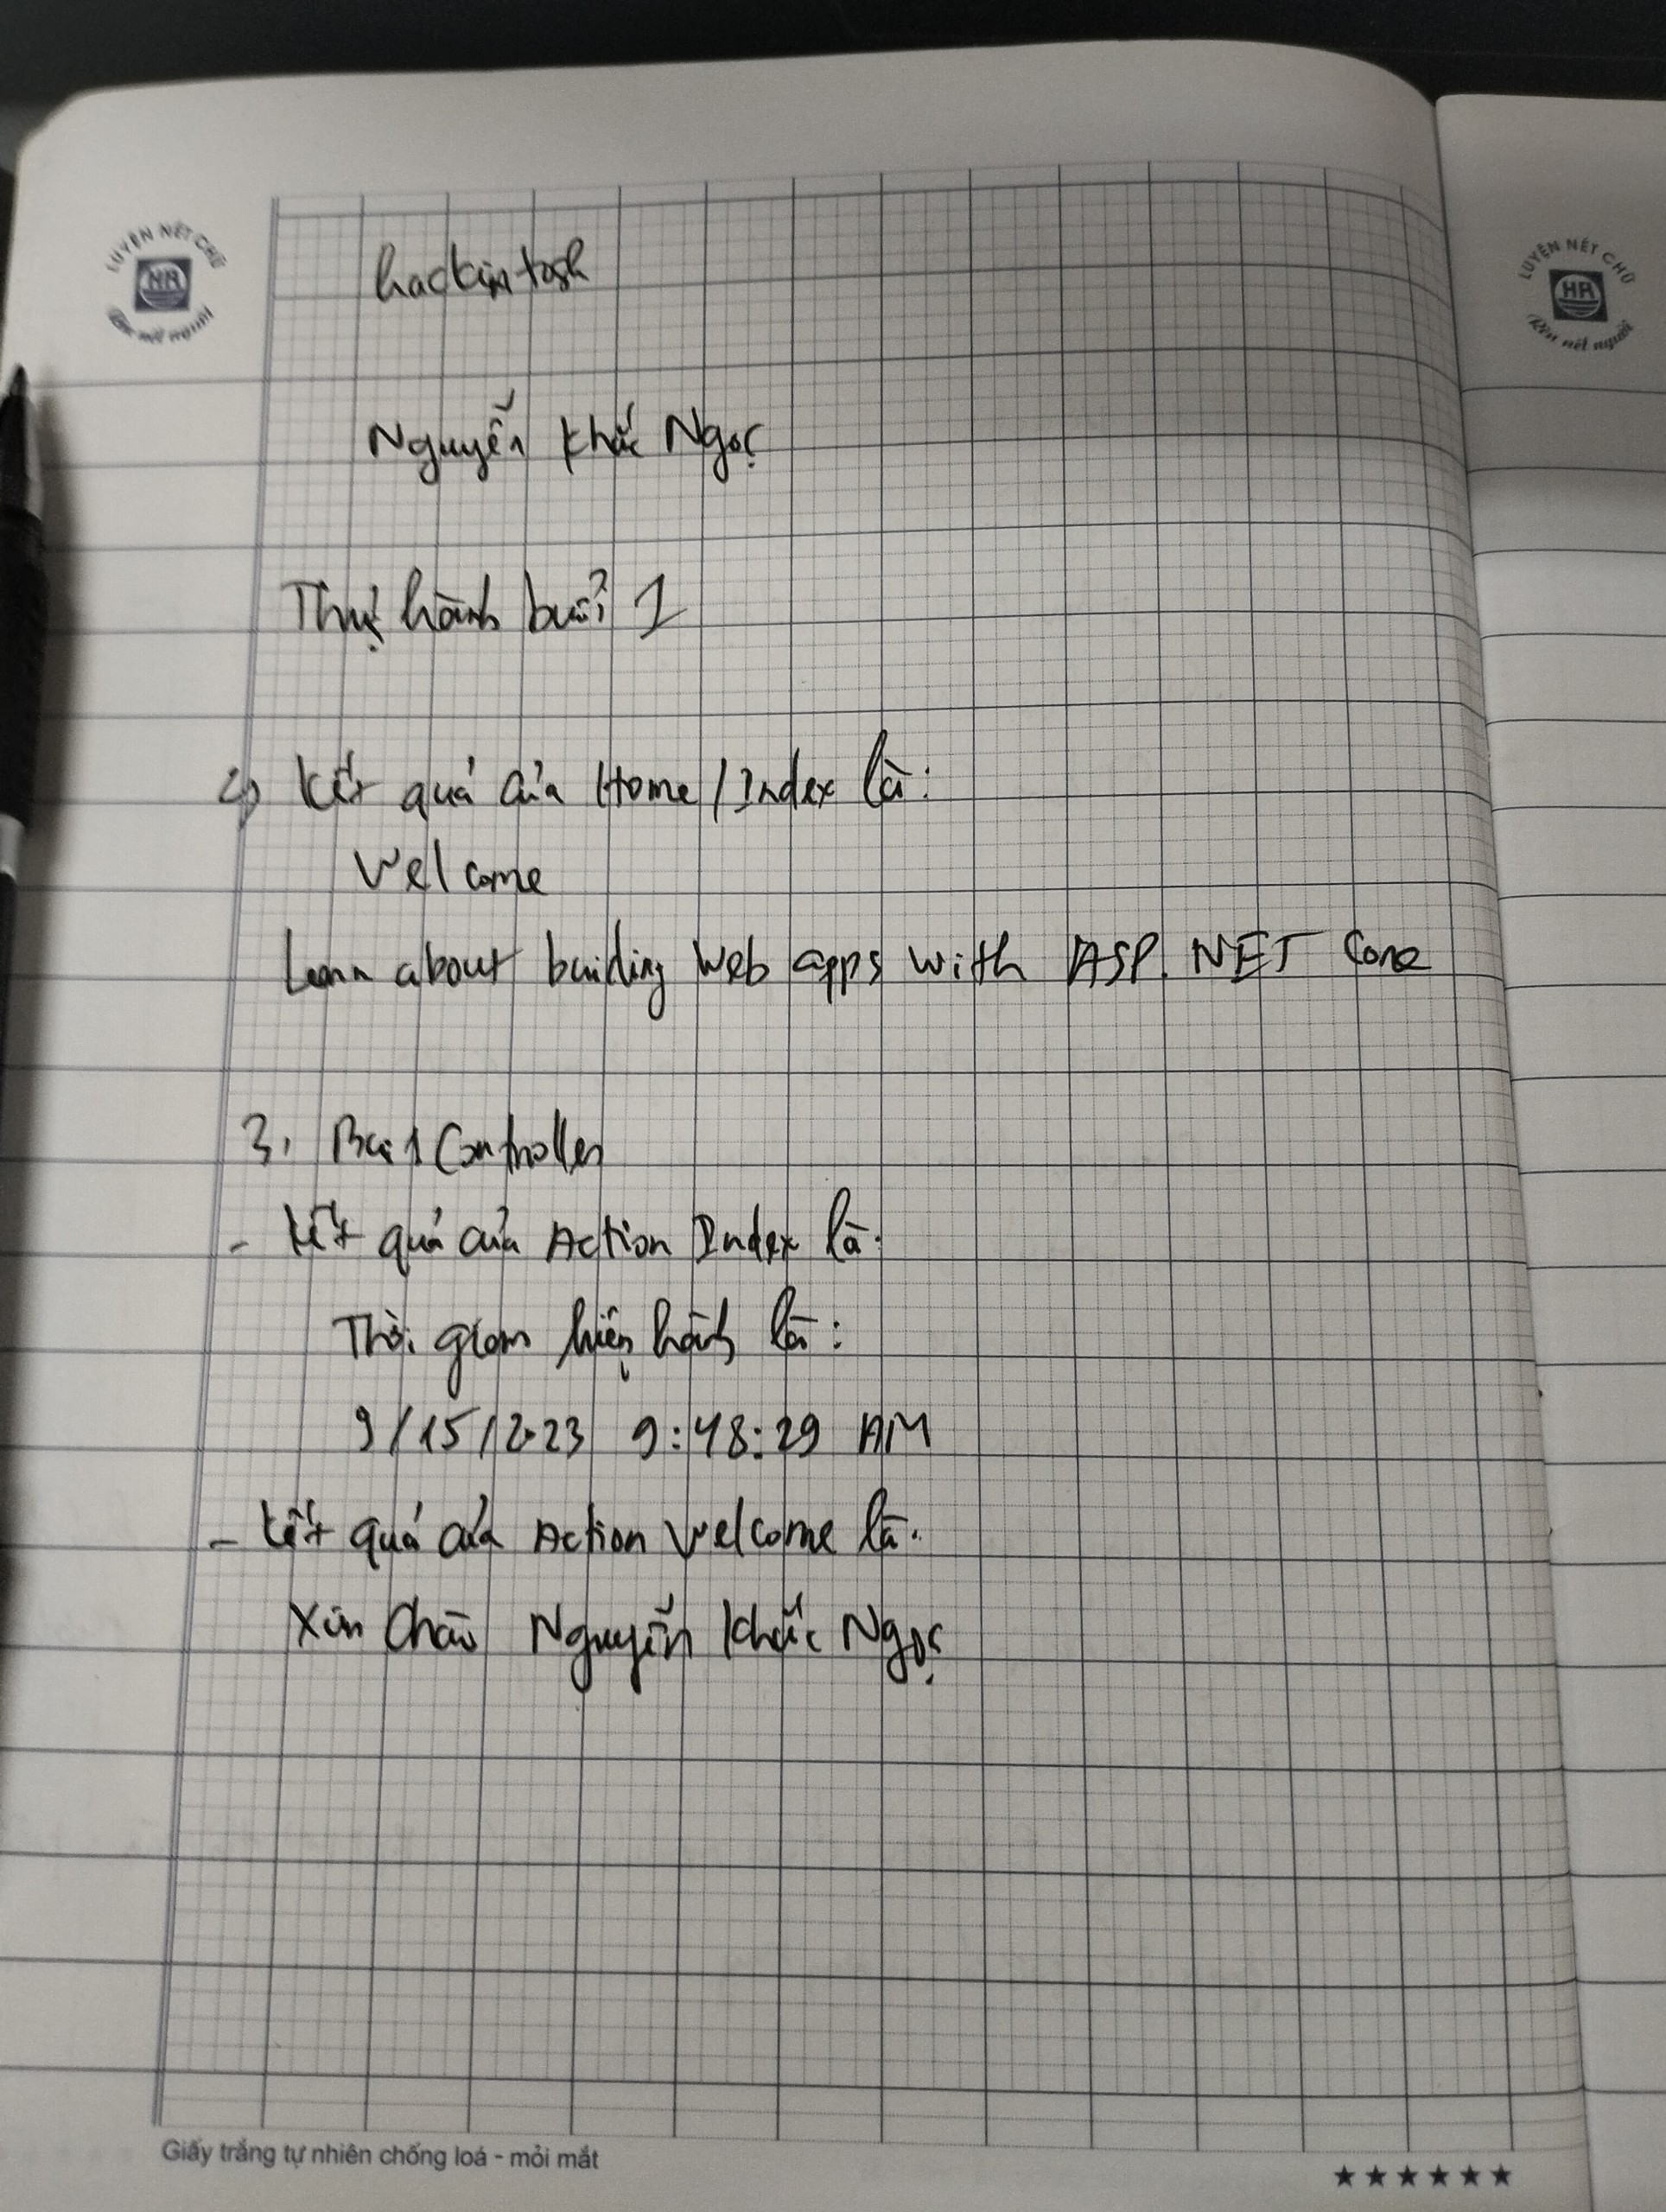 LUYỆN NÉT CHỮ
HR
Rèn nết người
LUYỆN NÉT CHỮ
HR
Rèn nết người
hackintosh
Nguyễn Khắc Ngọc
Thực hành buổi 1
Kết quả của Home/Index là:
Welcome
Learn about building Web apps with ASP.NET Core
3, Bai1Controller
- Kết quả của Action Index là:
Thời gian hiện hành là:
9/15/2023 9:48:29 AM
- Kết quả của Action Welcome là:
Xin Chào Nguyễn Khắc Ngọc
Giấy trắng tự nhiên chống loá - mỏi mắt